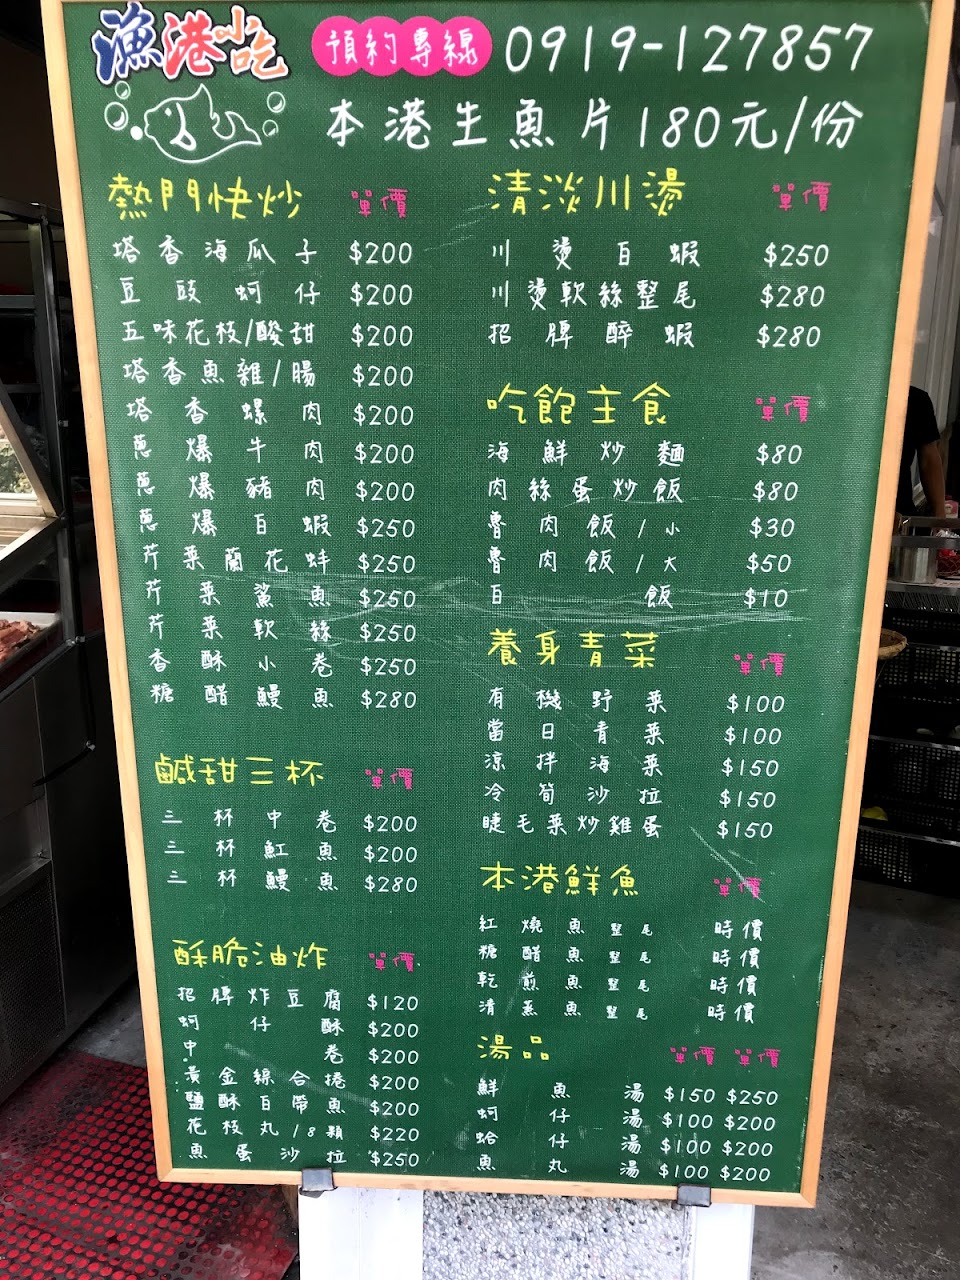 漁港小吃 預約專線 0919-127857
本港生魚片180元/份
熱門快炒 單價
塔香海瓜子 $200
豆豉蚵仔 $200
五味花枝/酸甜 $200
塔香魚雜/腸 $200
塔香螺肉 $200
蔥爆牛肉 $200
蔥爆豬肉 $200
蔥爆白蝦 $250
芹菜蘭花蚌 $250
芹菜鯊魚 $250
芹菜軟絲 $250
香酥小卷 $250
糖醋鰻魚 $280
鹹甜三杯 單價
三杯中卷 $200
三杯魟魚 $200
三杯鰻魚 $280
酥脆油炸 單價
招牌炸豆腐 $120
蚵仔酥 $200
中卷 $200
黃金綜合捲 $200
鹽酥白帶魚 $200
花枝丸/8顆 $220
魚蛋沙拉 $250
清淡川燙 單價
川燙白蝦 $250
川燙軟絲整尾 $280
招牌醉蝦 $280
吃飽主食 單價
海鮮炒麵 $80
肉絲蛋炒飯 $80
魯肉飯/小 $30
魯肉飯/大 $50
白飯 $10
養身青菜 單價
有機野菜 $100
當日青菜 $100
涼拌海菜 $150
冷筍沙拉 $150
睫毛菜炒雞蛋 $150
本港鮮魚 單價
紅燒魚整尾 時價
糖醋魚整尾 時價
乾煎魚整尾 時價
清蒸魚整尾 時價
湯品 單價 單價
鮮魚湯 $150 $250
蚵仔湯 $100 $200
蛤仔湯 $100 $200
魚丸湯 $100 $200